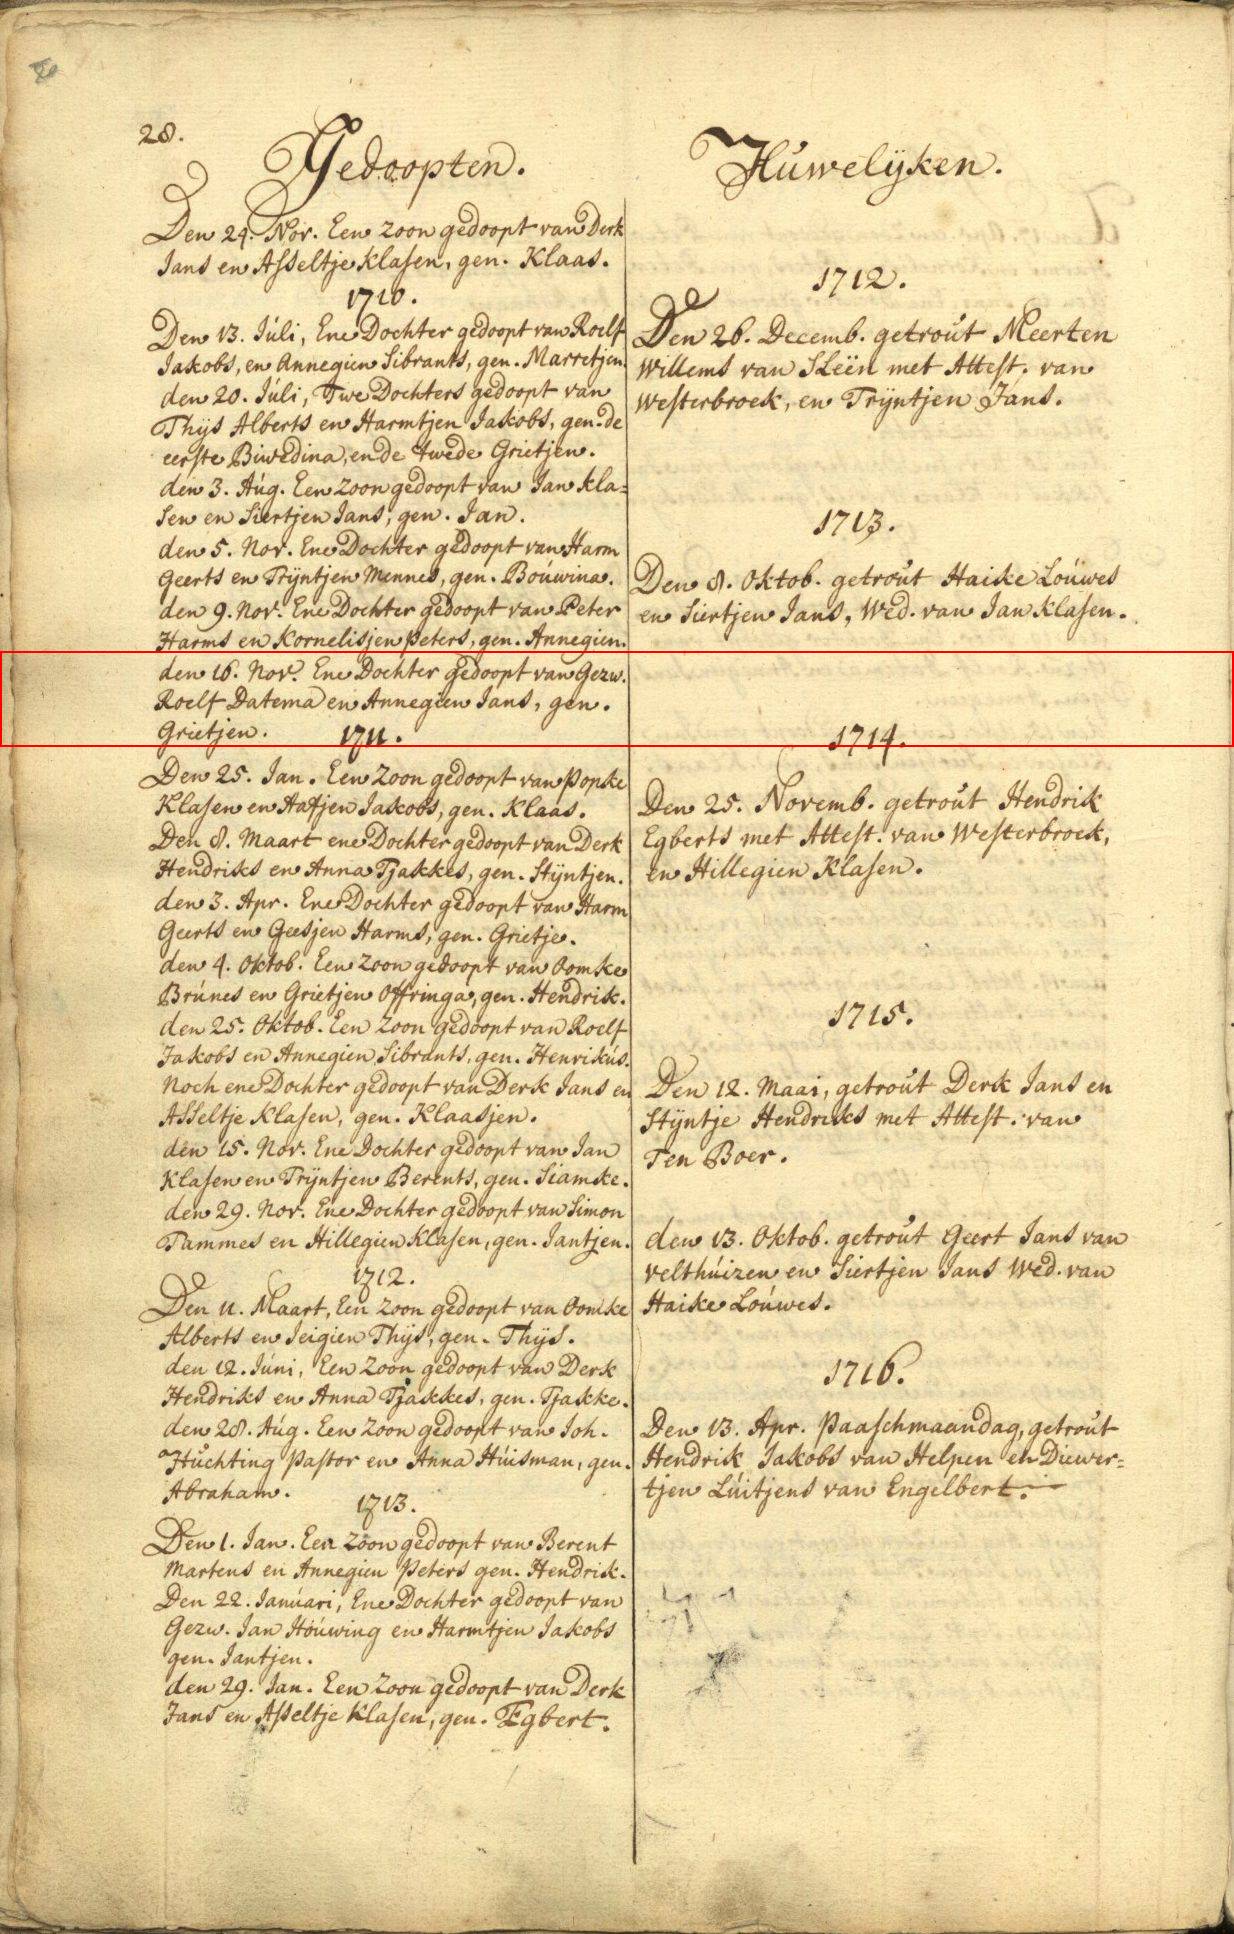 28.
Gedoopten.
Den 24. Nov. Een zoon gedoopt van Derk
Jans en Asseltje Klasen, gen. Klaas.
1710.
Den 13. Júli, Ene Dochter gedoopt van Roelf
Jakobs, en Annegien Sibrants, gen. Marretjen.
den 20. Júli, Twe Dochters gedoopt van
Thijs Alberts en Harmtjen Jakobs, gen. de
eerste Biwedina, en de twede Grietjen.
den 3. Aúg. Een zoon gedoopt van Jan Kla=
sen en Siertjen Jans, gen. Jan.
den 5. Nov. Ene Dochter gedoopt van Harm
Geerts en Trijntjen Mennes, gen. Boúwina.
den 9. Nov. Ene Dochter gedoopt van Peter
Harms en Kornelisjen Peters, gen. Annegien.
den 16. Nov. Ene Dochter gedoopt van Gezw.
Roelf Datema en Annegien Jans, gen.
Grietjen.
1711.
Den 25. Jan. Een zoon gedoopt van Popke
Klasen en Aaltjen Jakobs, gen. Klaas.
Den 8. Maart ene Dochter gedoopt van Derk
Hendriks en Anna Tjakkes, gen. Stijntjen.
den 3. Apr. Ene Dochter gedoopt van Harm
Geerts en Geesjen Harms, gen. Grietje.
den 4. Oktob. Een zoon gedoopt van Oomke
Brúnes en Grietjen Offringa, gen. Hendrik.
den 25. Oktob. Een zoon gedoopt van Roelf
Jakobs en Annegien Sibrants, gen. Henrikús.
Noch ene Dochter gedoopt van Derk Jans en
Asseltje Klasen, gen. Klaasjen.
den 15. Nov. Ene Dochter gedoopt van Jan
Klasen en Trijntjen Berents, gen. Siamke.
den 29. Nov. Ene Dochter gedoopt van Simon
Tammes en Hillegien Klasen, gen. Jantjen.
1712.
Den 11. Maart, Een zoon gedoopt van Oomke
Alberts en Jeigien Thijs, gen. Thijs.
den 12. Júni, Een zoon gedoopt van Derk
Hendriks en Anna Tjakkes, gen. Tjakke.
den 28. Aúg. Een zoon gedoopt van Joh.
Húchting Pastor en Anna Húisman, gen.
Abraham.
1713.
Den 1. Jan. Een zoon gedoopt van Berent
Martens en Annegien Peters gen. Hendrik.
Den 22. Janúari, Ene Dochter gedoopt van
Gezw. Jan Hoúwing en Harmtjen Jakobs
gen. Jantjen.
den 29. Jan. Een zoon gedoopt van Derk
Jans en Asseltje Klasen, gen. Egbert.
Húwelijken.
1712.
Den 26. Decemb. getroút Meerten
Willems van Sleën met Attest. van
Westerbroek, en Trijntjen Jans.
1713.
Den 8. Oktob. getroút Haike Loúwes
en Siertjen Jans, Wed. van Jan Klasen.
1714.
Den 25. Novemb. getroút Hendrik
Egberts met Attest. van Westerbroek,
en Hillegien Klasen.
1715.
Den 12. Maai, getroút Derk Jans en
Stijntje Hendriks met Attest. van
Ten Boer.
den 13. Oktob. getroút Geert Jans van
Velthúizen en Siertjen Jans Wed. van
Haike Loúwes.
1716.
Den 13. Apr. Paaschmaandag, getroút
Hendrik Jakobs van Helpen en Diewer=
tjen Lúitjens van Engelbert.